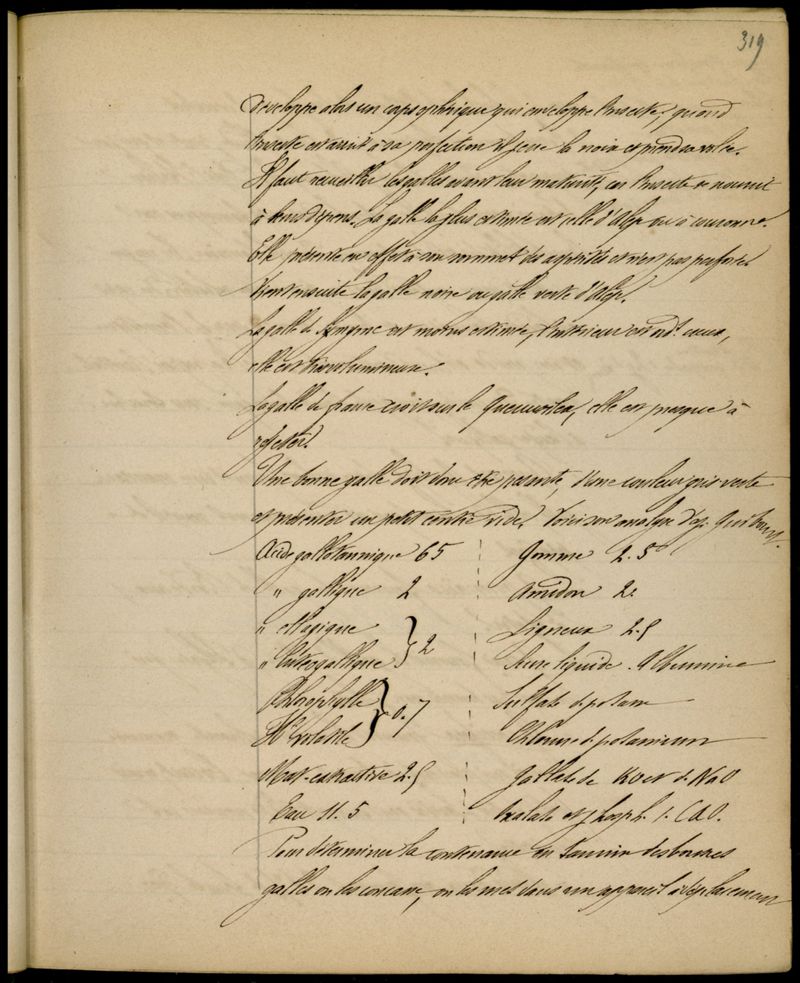 319
développe alors un corps sphérique qui enveloppe l'insecte, quand
l'insecte est arrivé à sa perfection il perce la noix et prend sa volée.
Il faut recueillir les galles avant leur maturité, car l'insecte se nourrit
à leurs dépens. La galle la plus estimée est celle d'Alep ou à couronne.
Elle présente en effet à son sommet des aspérités et n'est pas perforée
vient ensuite la galle noire ou galle verte d'Alep.
La galle de Smyrne est moins estimée, l'intérieur est creux,
elle est très volumineuse.
La galle de france croît sur le Quercus ilex, elle est presque à
rejeter.
Une bonne galle doit donc être pesante, d'une couleur gris verte
et présenter un petit centre vide. Voici son analyse d'ap. Guibourt.
Acide gallotannique 65 Gomme 2.5
" gallique 2 Amidon 2.
" ellagique } 2 Ligneux
" lutéogallique Sucre liquide. Albumine
Chlorophylle } 0.7 Sulfate de potasse
H. volatile Chlorure de potassium
Mat. extractive 2.5 Gallate de KO et de NaO
Eau 11.5 oxalate et phosph. d. CaO.
Pour déterminer la contenance en tannin des bonnes
galles on les concasse, on les met dans un appareil à déplacement